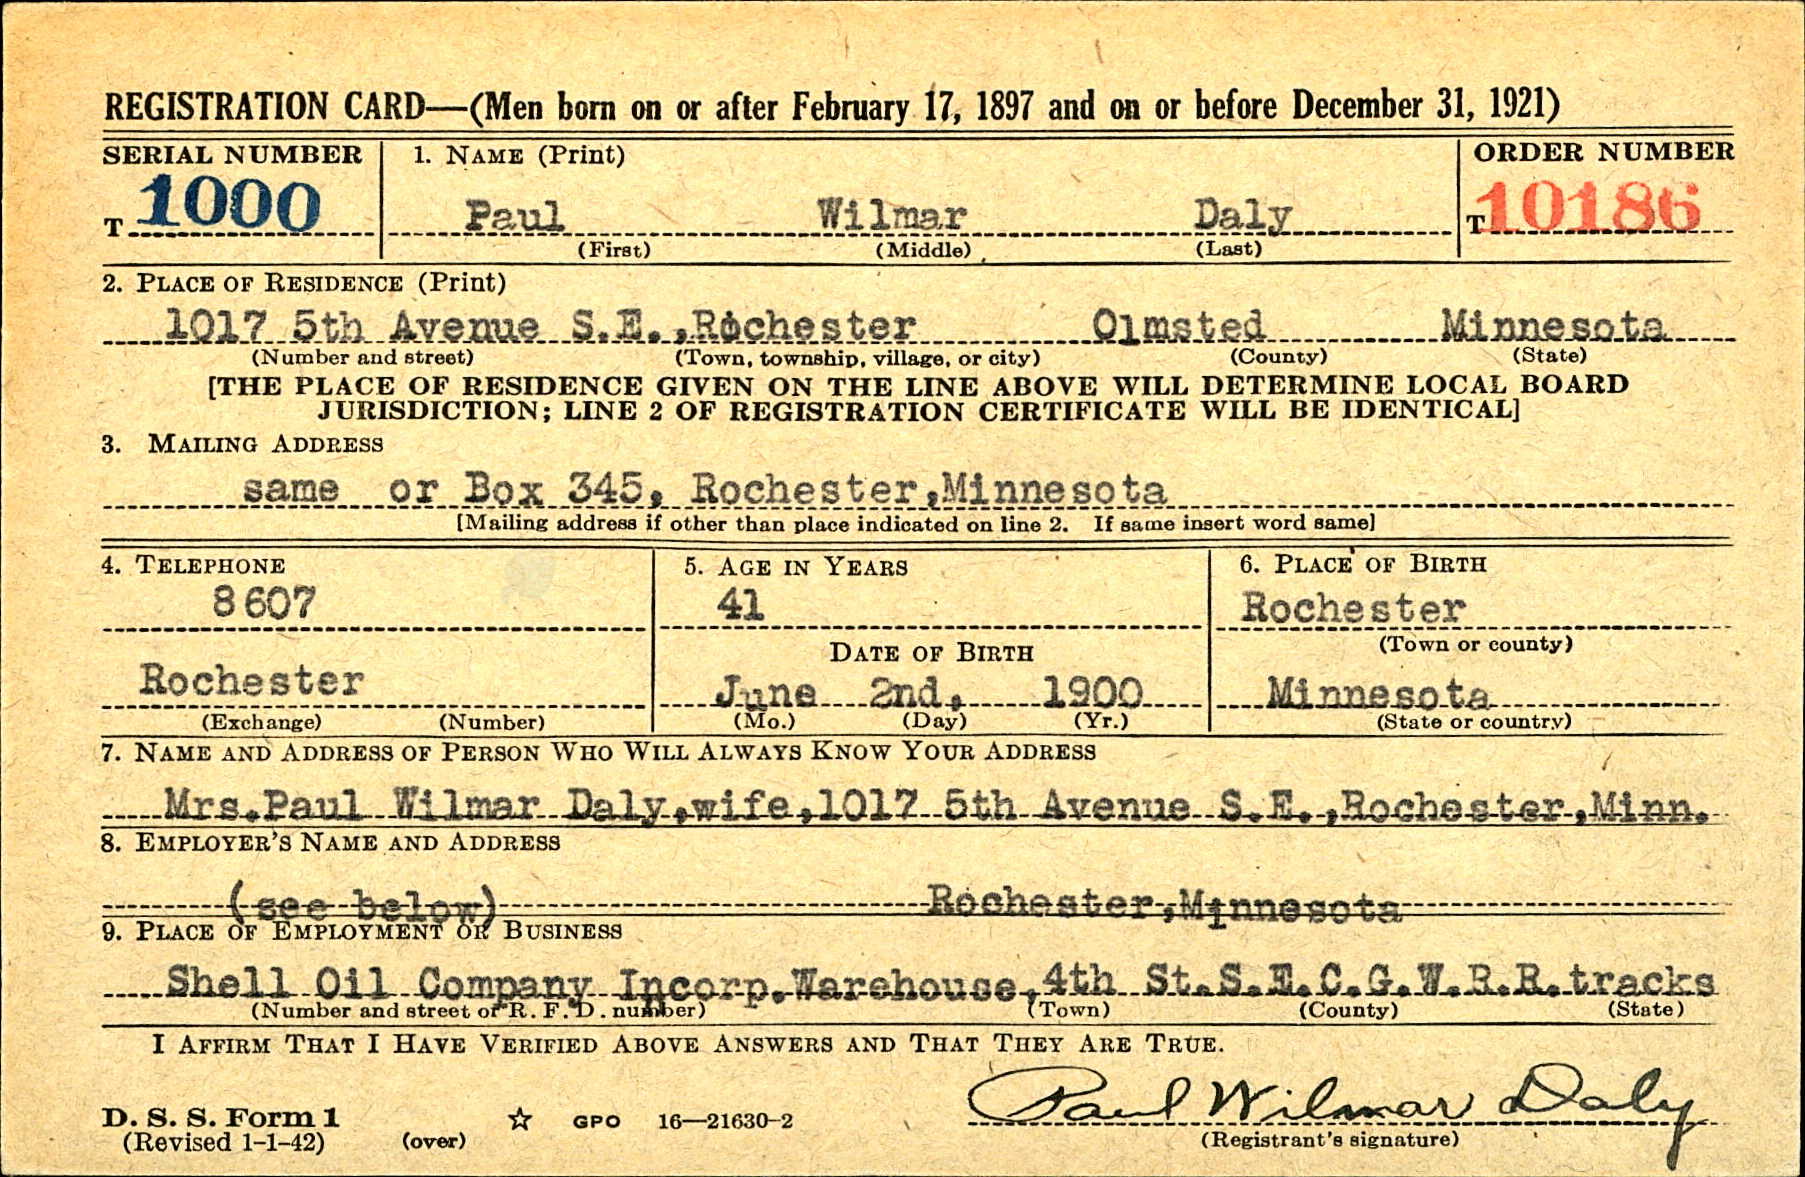 REGISTRATION CARD—(Men born on or after February 17, 1897 and on or before December 31, 1921)
SERIAL NUMBER 1. NAME (Print) ORDER NUMBER
T 1000 Paul Wilmar Daly T 10186
(First) (Middle) (Last)
2. PLACE OF RESIDENCE (Print)
1017 5th Avenue S.E.,Rochester Olmsted Minnesota
(Number and street) (Town, township, village, or city) (County) (State)
[THE PLACE OF RESIDENCE GIVEN ON THE LINE ABOVE WILL DETERMINE LOCAL BOARD
JURISDICTION; LINE 2 OF REGISTRATION CERTIFICATE WILL BE IDENTICAL]
3. MAILING ADDRESS
same or Box 345, Rochester,Minnesota
[Mailing address if other than place indicated on line 2. If same insert word same]
4. TELEPHONE 5. AGE IN YEARS 6. PLACE OF BIRTH
8607 41 Rochester
(Town or county)
DATE OF BIRTH
Rochester June 2nd, 1900 Minnesota
(Exchange) (Number) (Mo.) (Day) (Yr.) (State or country)
7. NAME AND ADDRESS OF PERSON WHO WILL ALWAYS KNOW YOUR ADDRESS
Mrs.Paul Wilmar Daly,wife,1017 5th Avenue S.E.,Rochester,Minn.
8. EMPLOYER'S NAME AND ADDRESS
(see below) Rochester,Minnesota
9. PLACE OF EMPLOYMENT OR BUSINESS
Shell Oil Company Incorp.Warehouse,4th St.S.E.C.G.W.R.R.tracks
(Number and street or R. F. D. number) (Town) (County) (State)
I AFFIRM THAT I HAVE VERIFIED ABOVE ANSWERS AND THAT THEY ARE TRUE.
Paul Wilmar Daly
D. S. S. Form 1 GPO 16—21630-2
(Revised 1-1-42) (over) (Registrant's signature)